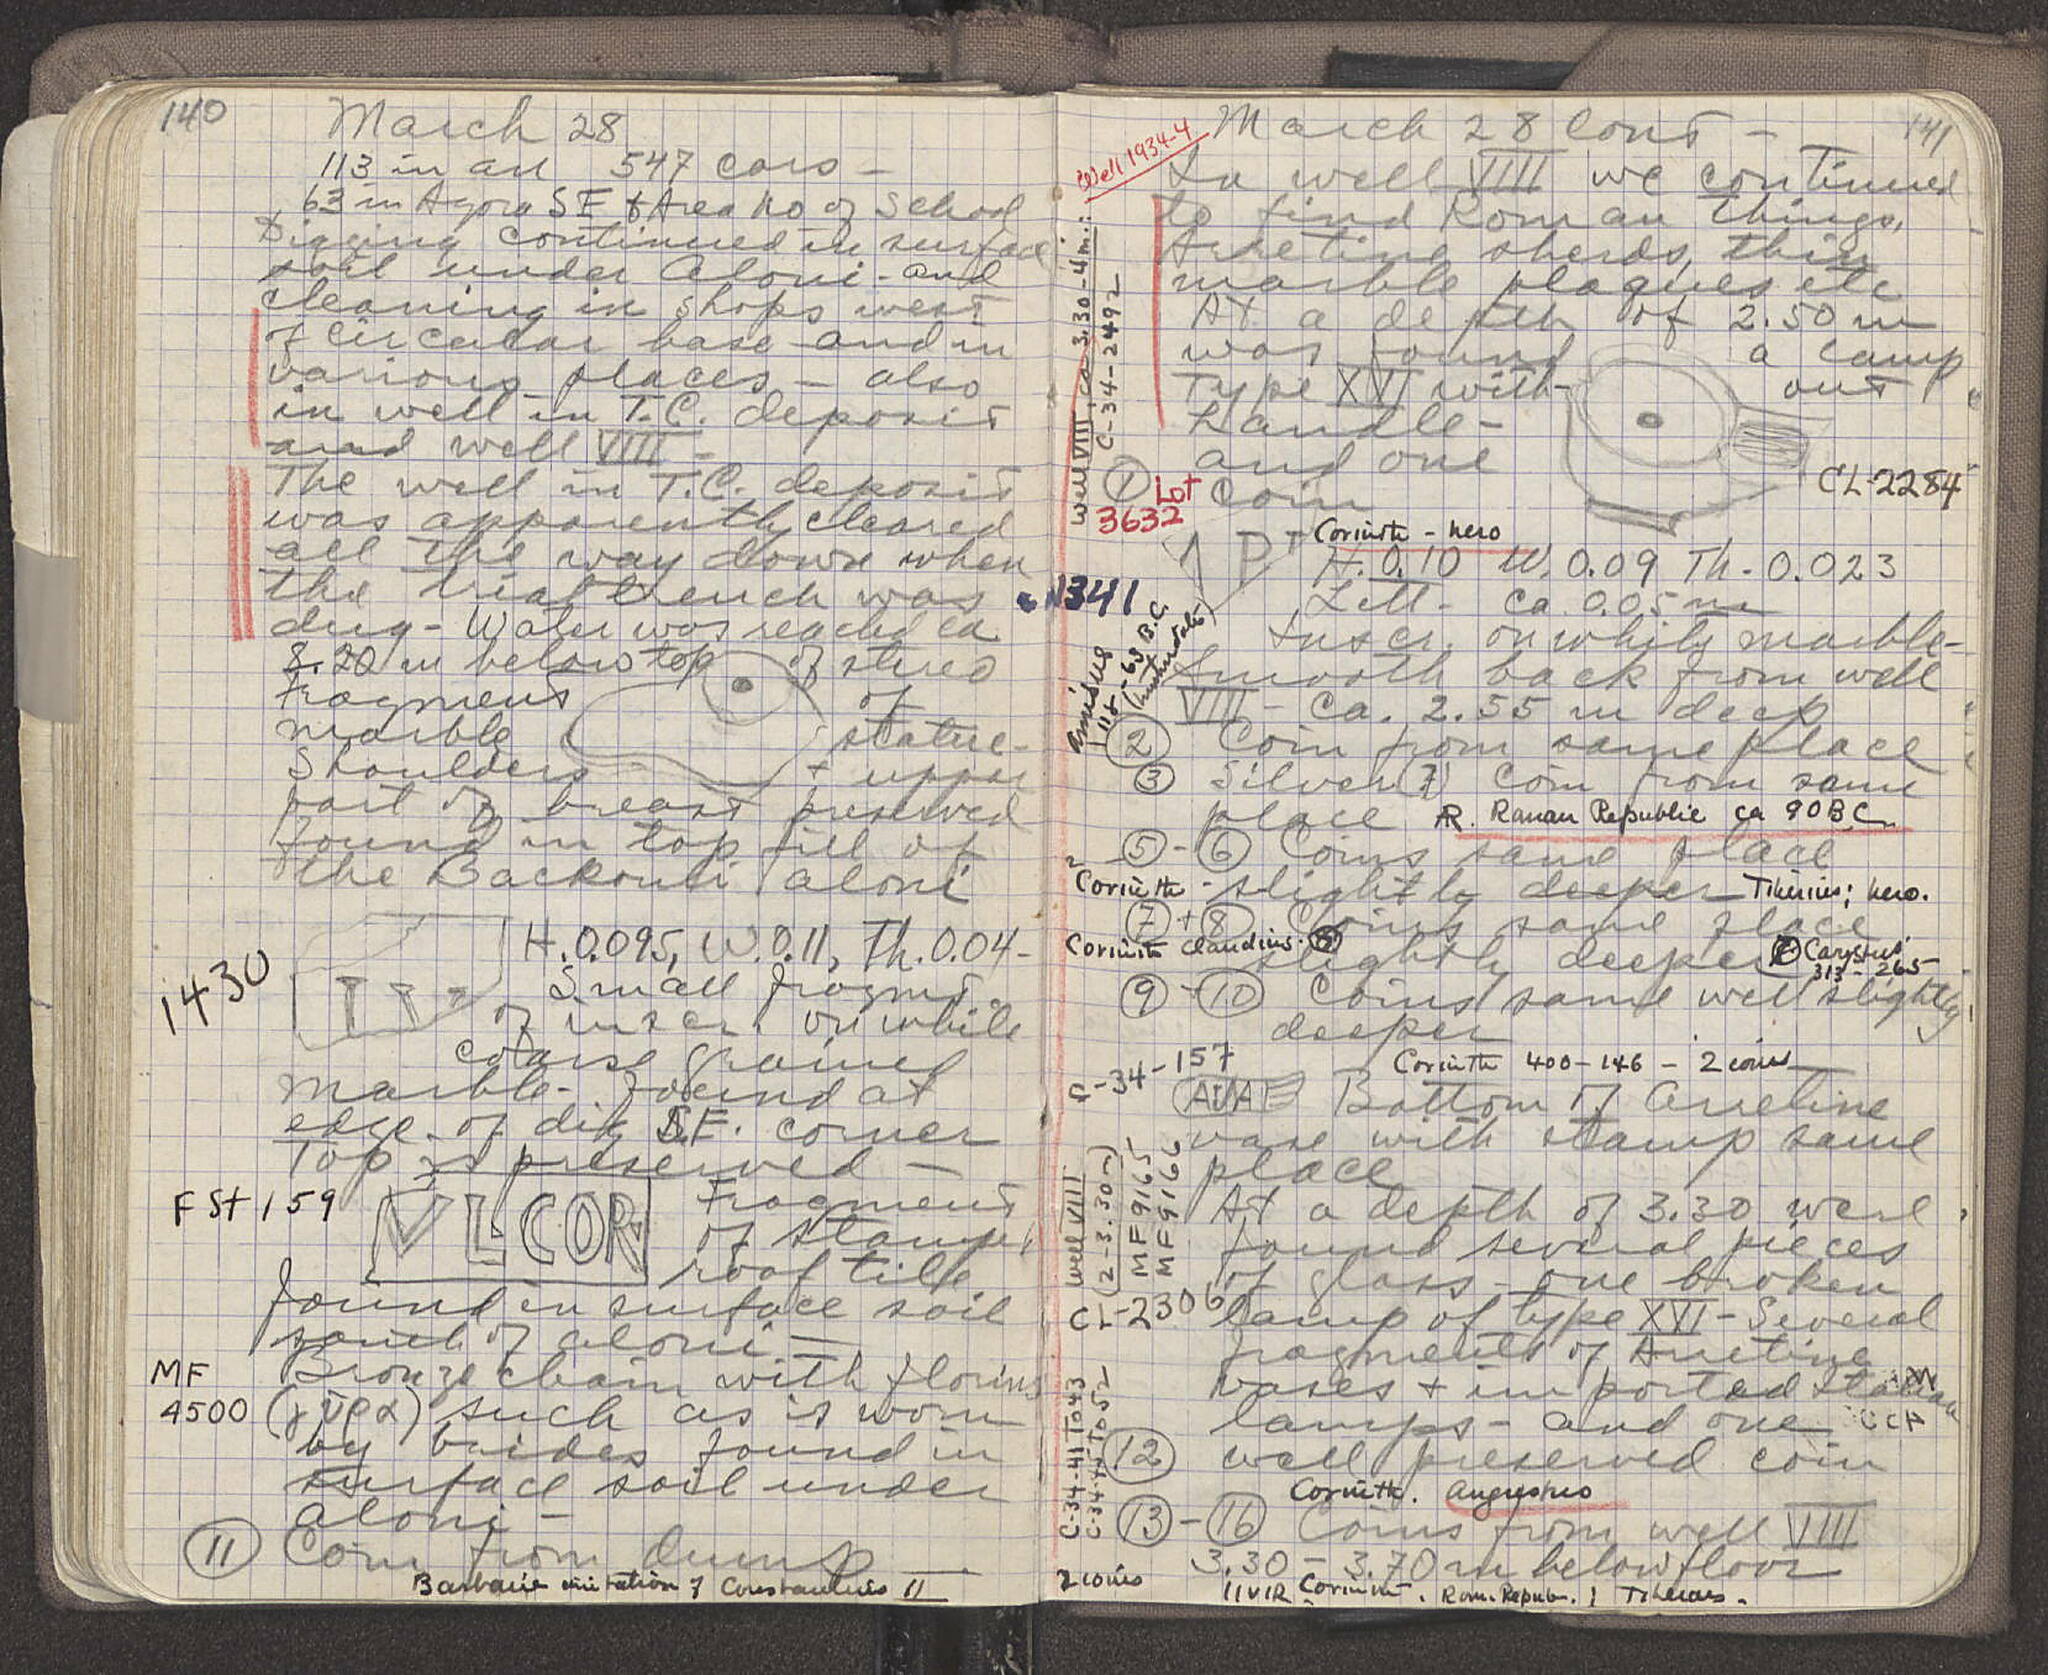 140
March 28
113 in all 547 cars -
63 in Agora SE & Area No of School
Digging continued in surface
soil under Aloni - and
cleaning in shops west
of circular base and in
various places - also
in well in T.C. deposit
and well VIIII -
The well in T.C. deposit
was apparently cleared
all the way down when
the trial trench was
dug - Water was reached ca
8.20 m below top of stereo
Fragment of
marble statue -
Shoulders + upper
part of breast preserved
found in top fill of
the Backouli aloni
1430
H. 0.095, W. 0.11, Th. 0.04 -
Small fragmt.
of inscr. on white
coarse grained
marble - found at
edge of dig S.E. corner
Top is preserved -
FSt 159
VLCOR
Fragment
of stamped
roof tile
found in surface soil
south of aloni -
MF
4500
Bronze chain with florins
such as is worn
by brides found in
surface soil under
aloni -
11 Coin from dump
Barbaric imitation of Constantius II
141
March 28 Cont -
Well 1934-4
In well VIIII we continued
to find Roman things,
Arretine sherds, thin
marble plaques etc
At a depth of 2.50 m
was found a lamp
type XVI with- out
handle -
and one
1 coin
Lot
3632
CL-2284
Corinth - Nero
Well VIII, ca 3.30-4m.:
C-34-2492
I341
H. 0.10 W. 0.09 Th. 0.023
Lett - ca 0.05 m
Inscr. on white marble -
Smooth back from well
VIII - ca. 2.55 m deep
Amisus
B.C.
2 Coin from same place
3 Silver (?) coin from same
place AR. Roman Republic ca 90 B.C.
5 - 6 Coins same place
2 Corinth - slightly deeper Tiberius; Nero.
7 + 8 Coins same place
Corinth Claudius. 8 slightly deeper 7 Carystus
313-265
9 - 10 Coins same well slightly
deeper
Corinth 400-146 - 2 coins
C-34-157
Bottom of Arretine
vase with stamp same
place
Well VIII
(2-3.30m)
MF 9165
MF 9166
At a depth of 3.30 were
found several pieces
of glass - one broken
CL-2306 lamp of type XVI - Several
fragments of Arretine
vases + imported Italian
lamps - and one
12 well preserved coin
Corinth. Augustus
C-34-41 to 43
13 - 16 Coins from well VIIII
3.30 - 3.70 m below floor
2 coins IIVIR Corinth. Rom. Repub. ; Tiberius.